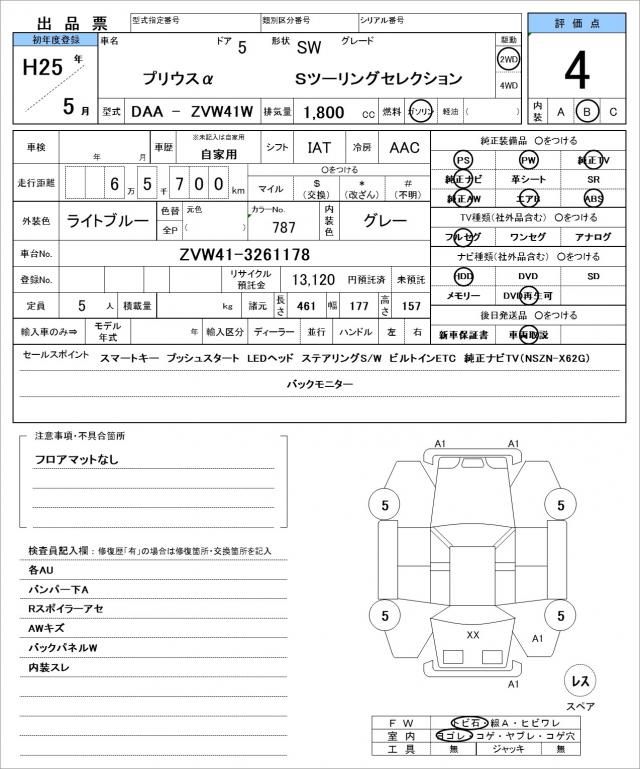 出品票 型式指定番号 類別区分番号 シリアル番号 評価点
初年度登録 車名 ドア 5 形状 SW グレード 駆動
H25 年 プリウスα Sツーリングセレクション 2WD 4
5 月 4WD
型式 DAA - ZVW41W 排気量 1,800 cc 燃料 ガソリン 軽油 ( ) 内装 A B C
車検 年 月 車歴 ※未記入は自家用 自家用 シフト IAT 冷房 AAC 純正装備品 〇をつける
PS PW 純正TV
走行距離 6 万 5 千 7 0 0 km 〇をつける マイル $ (交換) * (改ざん) # (不明) 純正ナビ 革シート SR
純正AW エアB ABS
外装色 ライトブルー 色替 全P 元色 ( ) カラーNo. 787 内装色 グレー TV種類(社外品含む) 〇をつける
フルセグ ワンセグ アナログ
車台No. ZVW41-3261178 ナビ種類(社外品含む) 〇をつける
登録No. リサイクル預託金 13,120 円預託済 未預託 HDD DVD SD
定員 5 人 積載量 kg 諸元 長さ 461 幅 177 高さ 157 メモリー DVD再生可
後日発送品 〇をつける
輸入車のみ⇒ モデル年式 年 輸入区分 ディーラー 並行 ハンドル 左 右 新車保証書 車両取説
セールスポイント スマートキー プッシュスタート LEDヘッド ステアリングS/W ビルトインETC 純正ナビTV(NSZN-X62G)
バックモニター
注意事項・不具合箇所
フロアマットなし
検査員記入欄：修復歴「有」の場合は修復箇所・交換箇所を記入
各AU
バンパー下A
Rスポイラーアセ
AWキズ
バックパネルW
内装スレ
A1 A1
5 5
5 5
XX A1
A1
レス
スペア
FW トビ石・線A・ヒビワレ
室内 ヨゴレ・コゲ・ヤブレ・コゲ穴
工具 無 ジャッキ 無